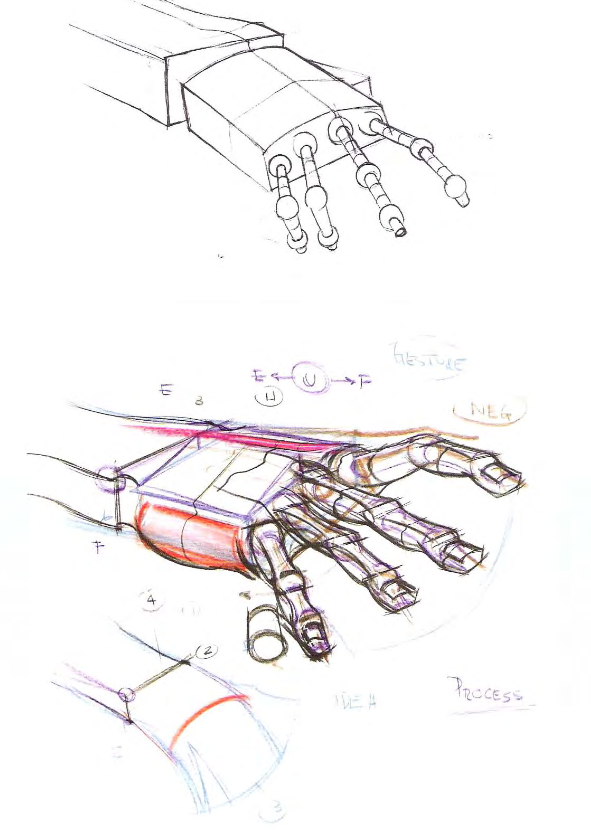 GESTURE
E ← U → F
H
E
3
NEG
F
4
2
IDEA
PROCESS
3